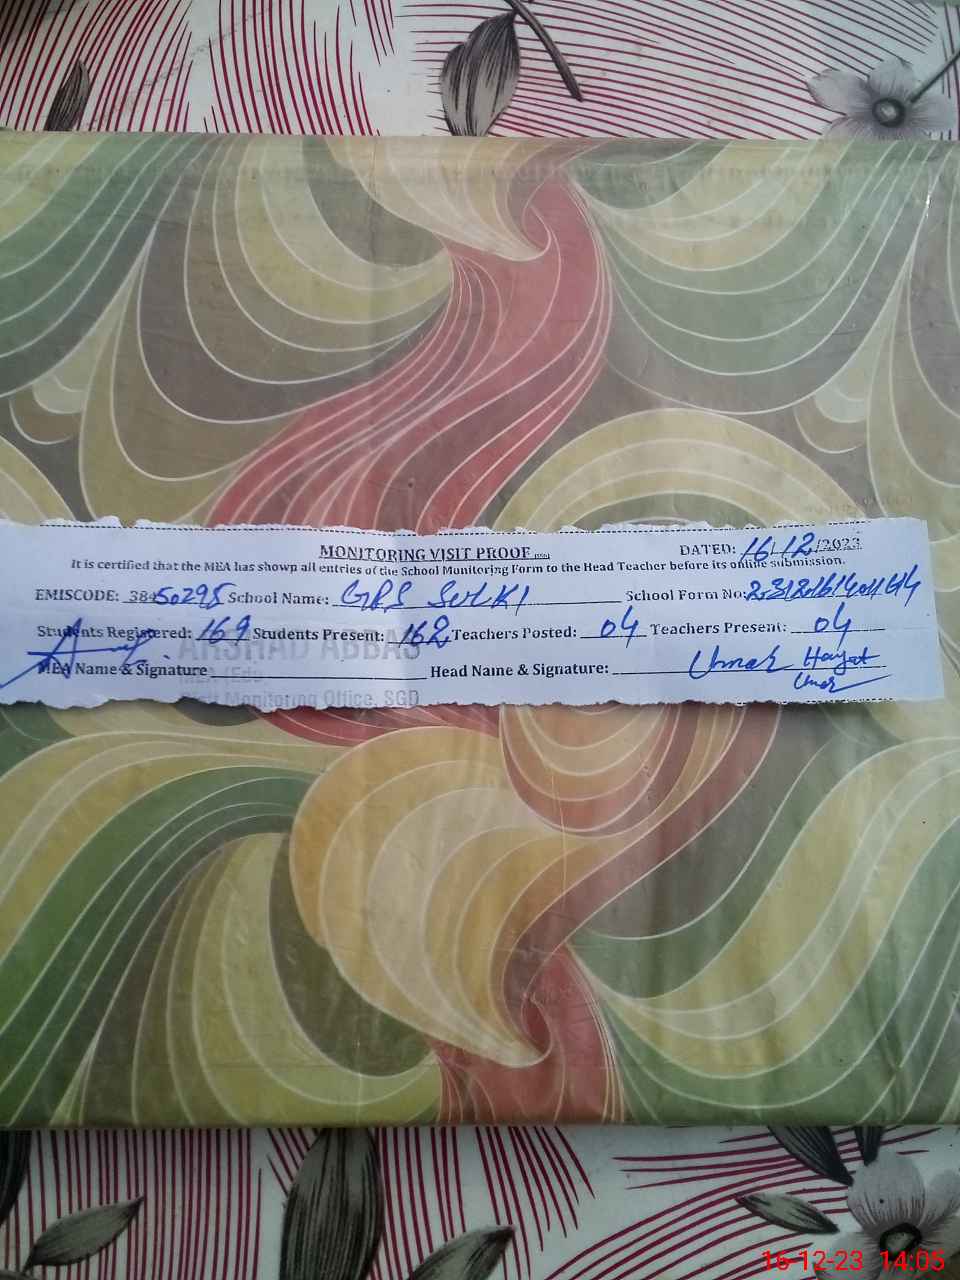 MONITORING VISIT PROOF
DATED: 16/12/2023
It is certified that the MEA has shown all entries of the School Monitoring Form to the Head Teacher before its online submission.
EMISCODE: 38450298 School Name: GPS SULKI School Form No:
Students Registered: 169 Students Present: 162 Teachers Posted: 04 Teachers Present: 04
ARSHAD ABBAS
MEA Name & Signature Head Name & Signature: Umar Hayat
Umar
MEA (Edu)
Monitoring Office, SGD
16-12-23 14:05